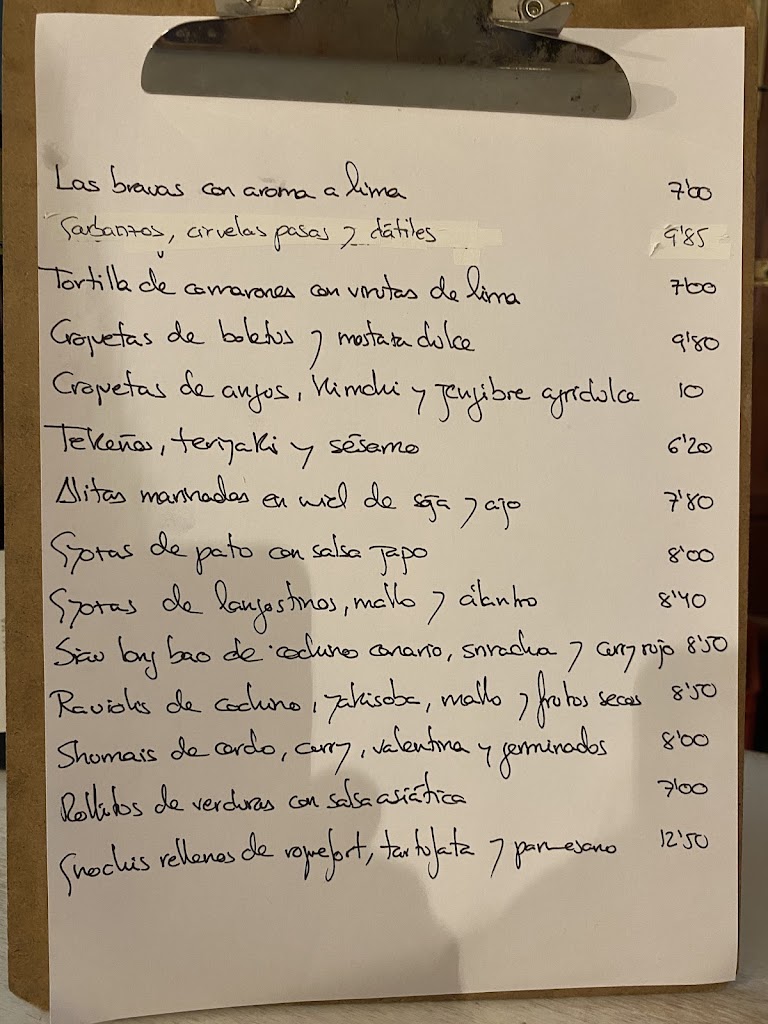 Las bravas con aroma a lima 7'00
Garbanzos, ciruelas pasas y dátiles 9'85
Tortilla de camarones con virutas de lima 7'00
Croquetas de boletus y mostaza dulce 9'80
Croquetas de kimchi y jengibre agridulce 10
Tekeños, teriyaki y sésamo 6'20
Alitas marinadas en miel de soja y ajo 7'80
Gyozas de pato con salsa japo 8'00
Gyozas de langostinos, mallo y cilantro 8'40
Siao long bao de cochino canario, sriracha y curry rojo 8'50
Raviolis de cochino, yakisoba, mallo y frutos secos 8'50
Shomais de cerdo, curry, valentina y germinados 8'00
Rollitos de verduras con salsa asiática 7'00
Gnochis rellenos de roquefort, tartufata y parmesano 12'50